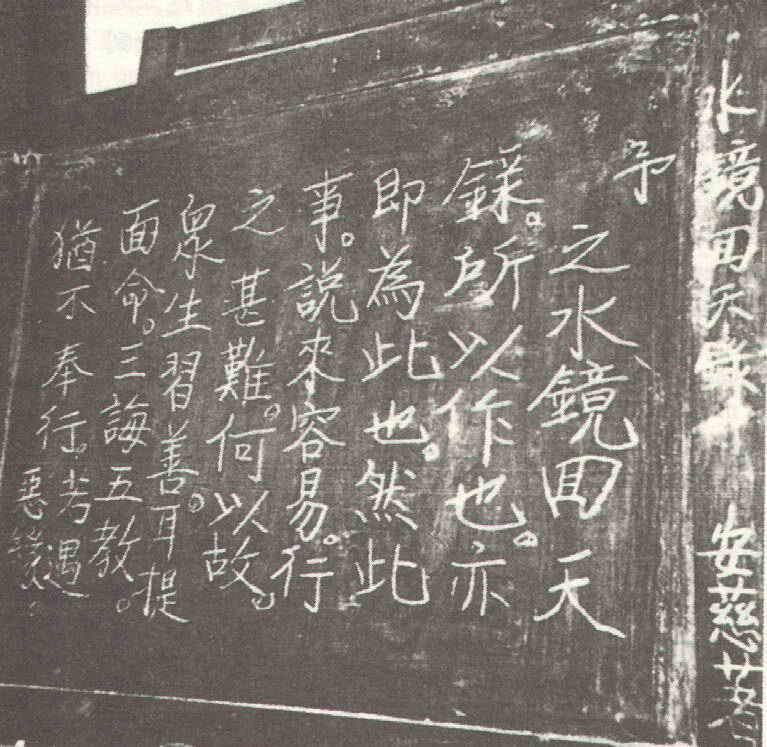 水鏡囬天錄 安慈著
予
之水鏡囬天
錄。所以作也。亦
即為此也。然此
事。説來容易。行
之甚難。何以故。
衆生習善。耳提
面命。三誨五教。
猶不奉行。若遇
惡